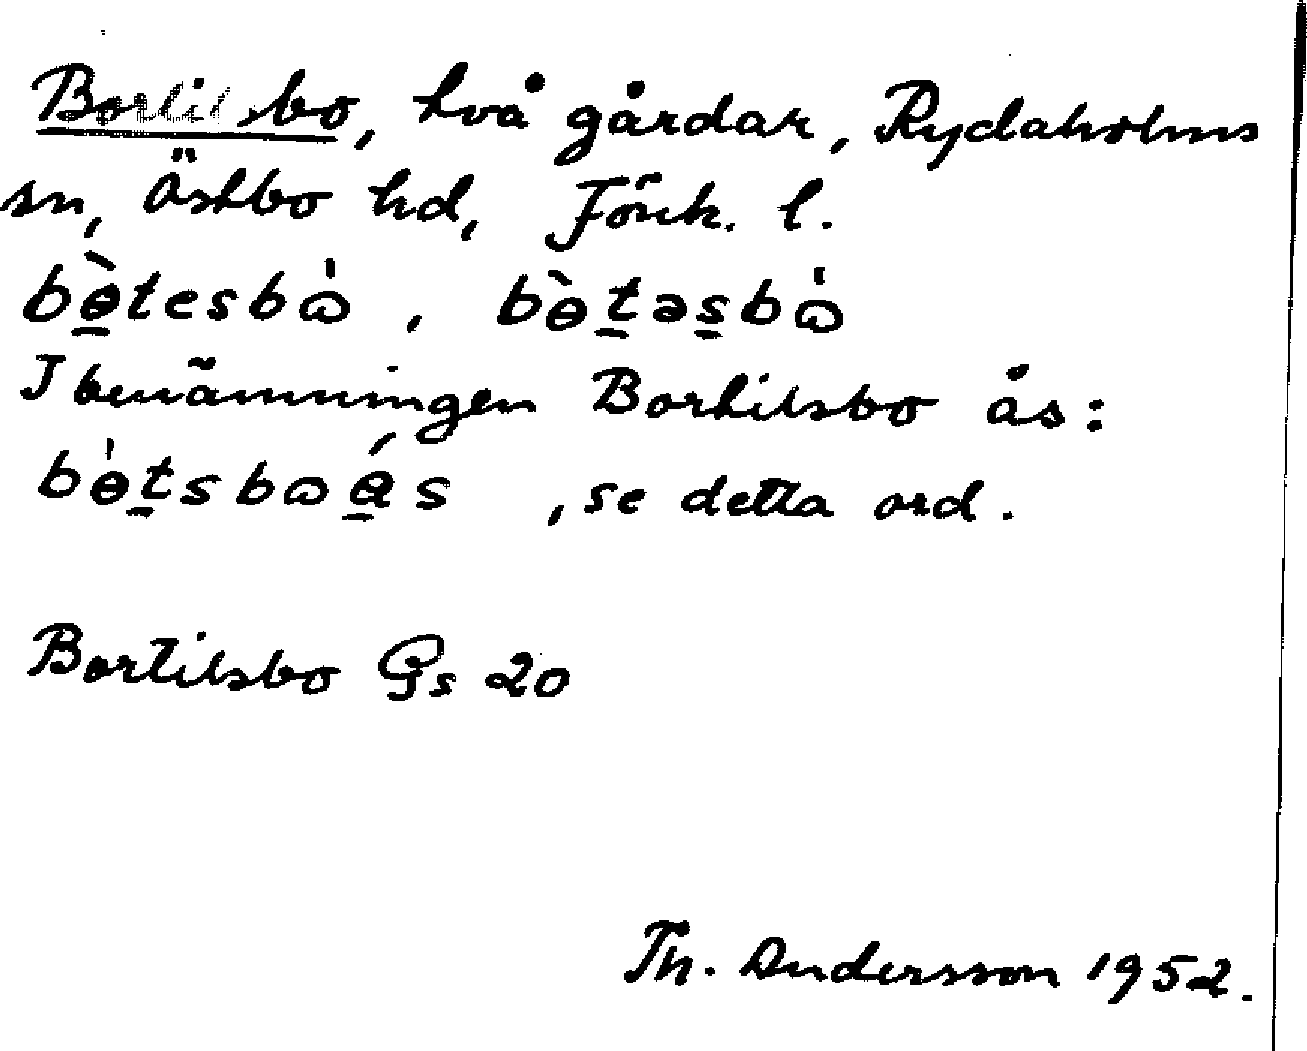 Bortilsbo, två gårdar, Rydaholms
sn, Östbo hd, Jönk. l.
bɵ̠̀tesbɷ̀, bɵ̀t̠əs̠bɷ̀
I benämningen Bortilsbo ås:
bɵ̀t̠sbɷá̠s, se detta ord.
Bortilsbo Gs 20
Th. Andersson 1952.